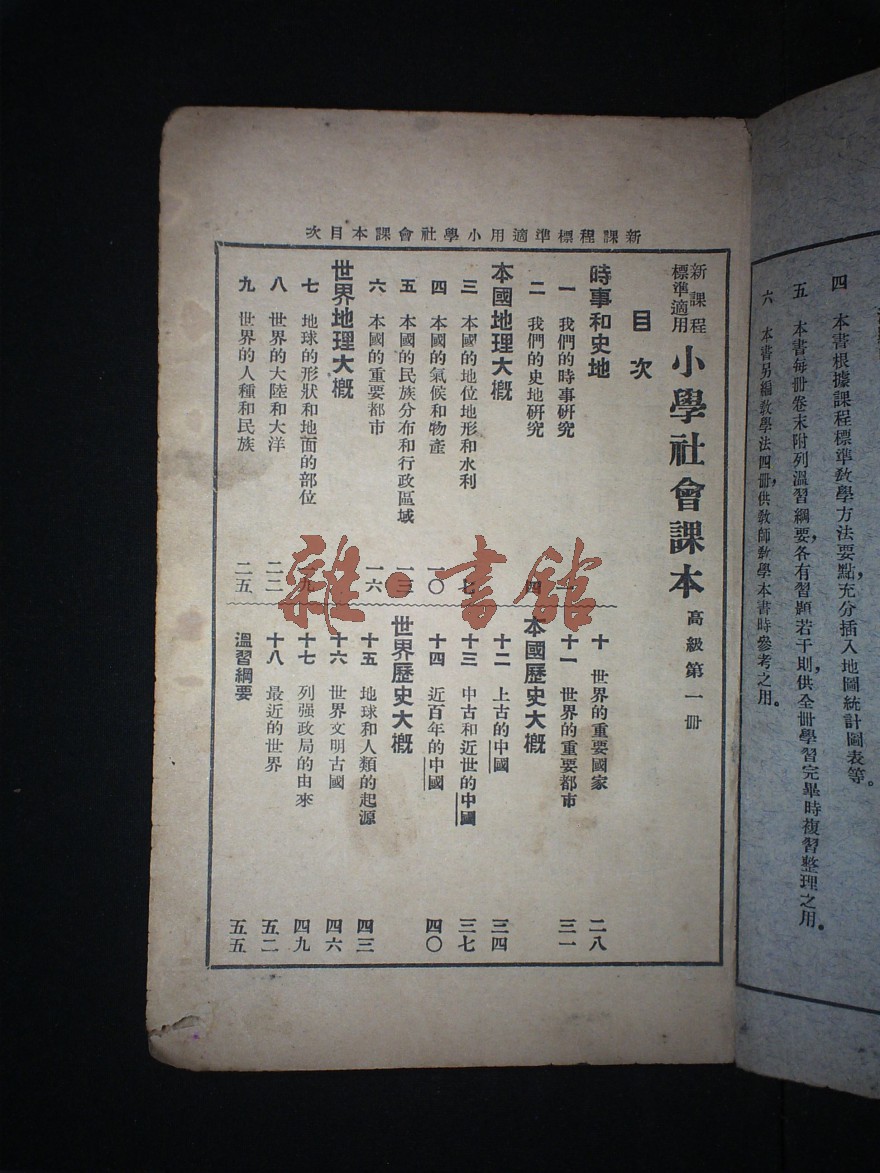 四 本書根據課程標準教學方法要點,充分插入地圖統計圖表等。
五 本書每冊卷末附列溫習綱要,各有習題若干則,供全冊學習完畢時複習整理之用。
六 本書另編教學法四冊,供教師教學本書時參考之用。
新課程標準適用小學社會課本目次
新課程
標準適用
小學社會課本 高級第一冊
目次
時事和史地
一 我們的時事研究
二 我們的史地研究 四
本國地理大概
三 本國的地位地形和水利 七
四 本國的氣候和物產 一〇
五 本國的民族分布和行政區域 一三
六 本國的重要都市 一六
世界地理大概
七 地球的形狀和地面的部位 一九
八 世界的大陸和大洋 二二
九 世界的人種和民族 二五
十 世界的重要國家 二八
十一 世界的重要都市 三一
本國歷史大概
十二 上古的中國 三四
十三 中古和近世的中國 三七
十四 近百年的中國 四〇
世界歷史大概
十五 地球和人類的起源 四三
十六 世界文明古國 四六
十七 列强政局的由來 四九
十八 最近的世界 五二
溫習綱要 五五
雜·書館